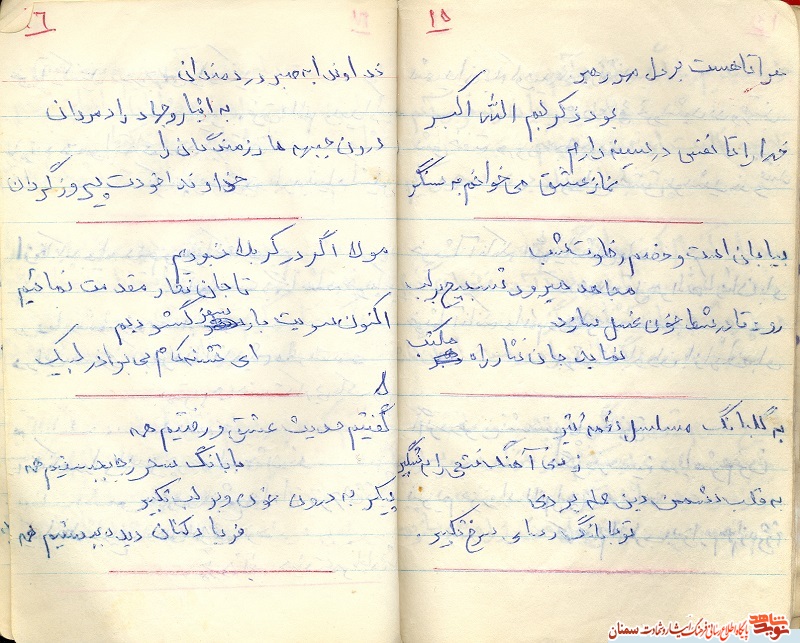 ۱۵
مرا تا هست بر دل مهر رهبر
بود ذکر لبم الله اکبر
خدا را تا نفس در سینه دارم
نماز عشق می خوانم به سنگر
بیابان است و خصم و خلوت شب
مجاهد میرود تسبیح بر لب
رود تا در شط خون غسل سازد
نماید جان نثار راه مکتب
به گلبانگ مسلسل نغمه تیر
زدی آهنگ عشقی را به شبگیر
به قلب دشمن دین حمله بردی
تو با بانگ رسای سرخ تکبیر
۶
خداوندا به صبر دردمندان
به ایثار و جهاد رادمردان
درون جبهه ها رزمندگان را
خداوندا خودت پیروز گردان
مولا اگر در کربلا نبودیم
تا جان نثار مقدمت نمائیم
اکنون بسویت بار سفر گشودیم
ای تشنه کام بی برادر لبیک
گفتیم حدیث عشق و رفتیم همه
بانگ سحر همه
پیکر به درون خون و بر لب تکبیر
فریاد کنان دیده ببستیم همه
نوید شاهد
پایگاه اطلاع رسانی فرهنگ ایثار و شهادت سمنان